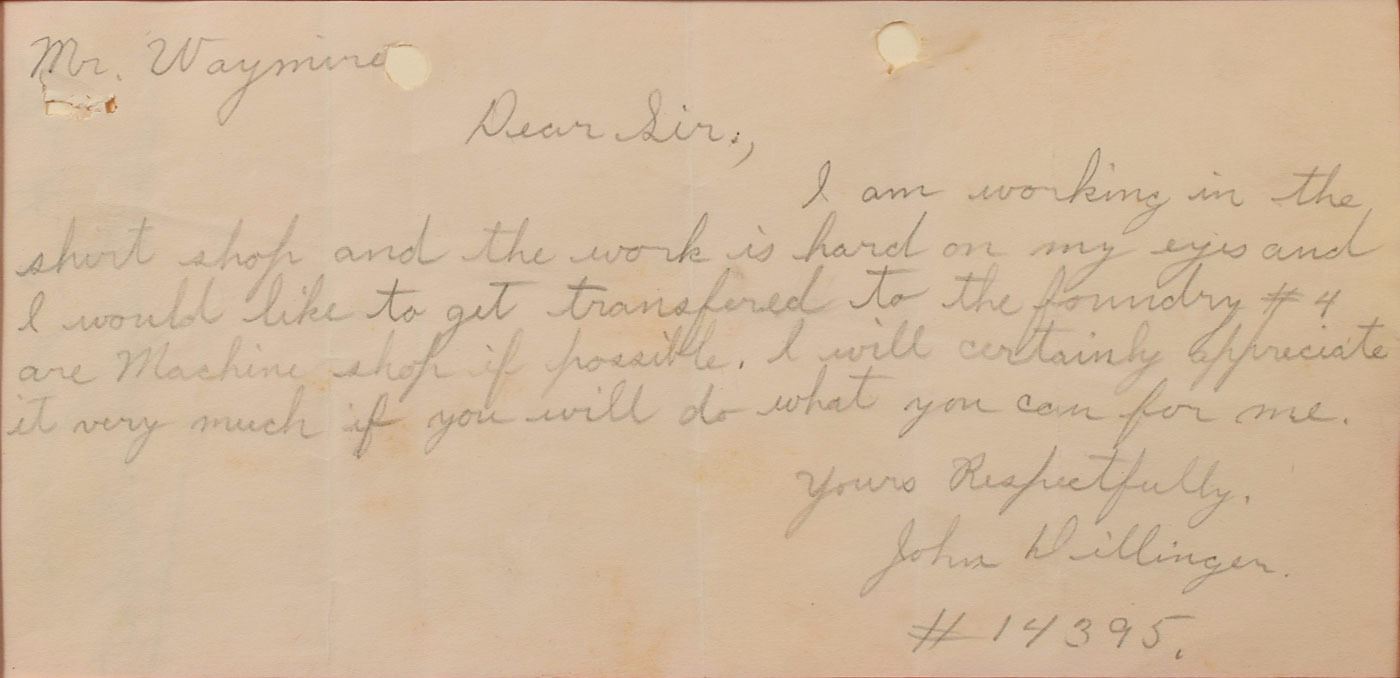 Mr. Waymire
Dear Sir.,
I am working in the
shirt shop and the work is hard on my eyes and
I would like to get transfered to the foundry #4
are Machine shop if possible. I will certainly appreciate
it very much if you will do what you can for me.
Yours Respectfully.
John Dillinger.
#14395.